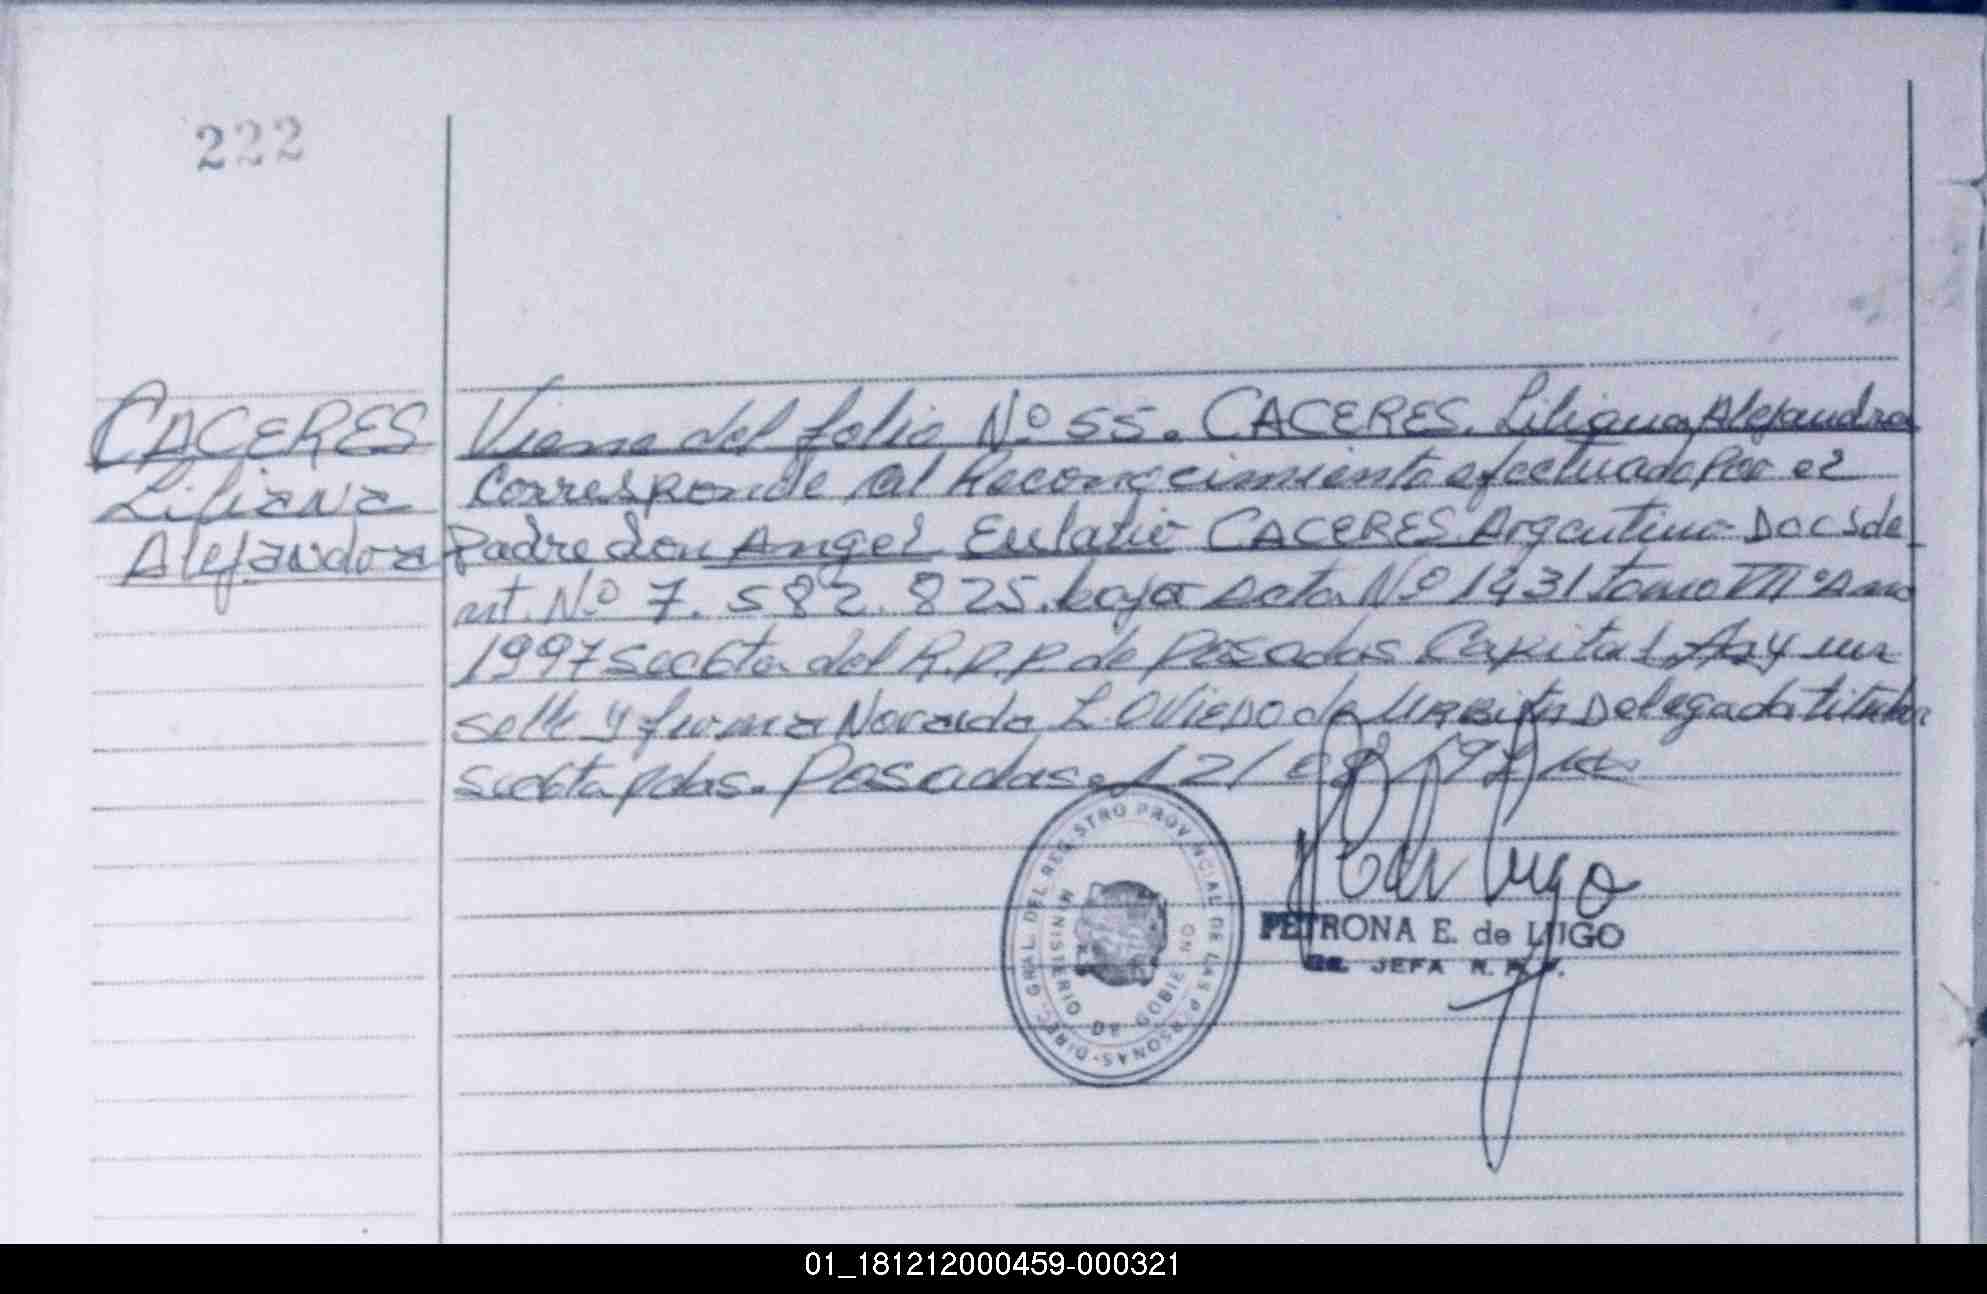 222
CACERES
Liliana
Alejandra
Viene del folio Nº 55. CACERES. Liliana Alejandra
Corresponde al Reconocimiento efectuado por el
Padre don Angel Eulalio CACERES Argentino Doc de
nt. Nº 7.582.825. bajo Acta Nº 1431 tomo VIIIº Año
1997 secc 6ta del R.P.P de Posadas Capital. Hay un
sello y firma Noraida L. OVIEDO de URBIETA Delegada titular
secc 6ta Pdas. Posadas. 12/08/97
DIREC. GRAL. DEL REGISTRO PROVINCIAL DE LAS PERSONAS
MINISTERIO DE GOBIERNO
PETRONA E. de LUGO
JEFA R. P. P.
01_181212000459-000321